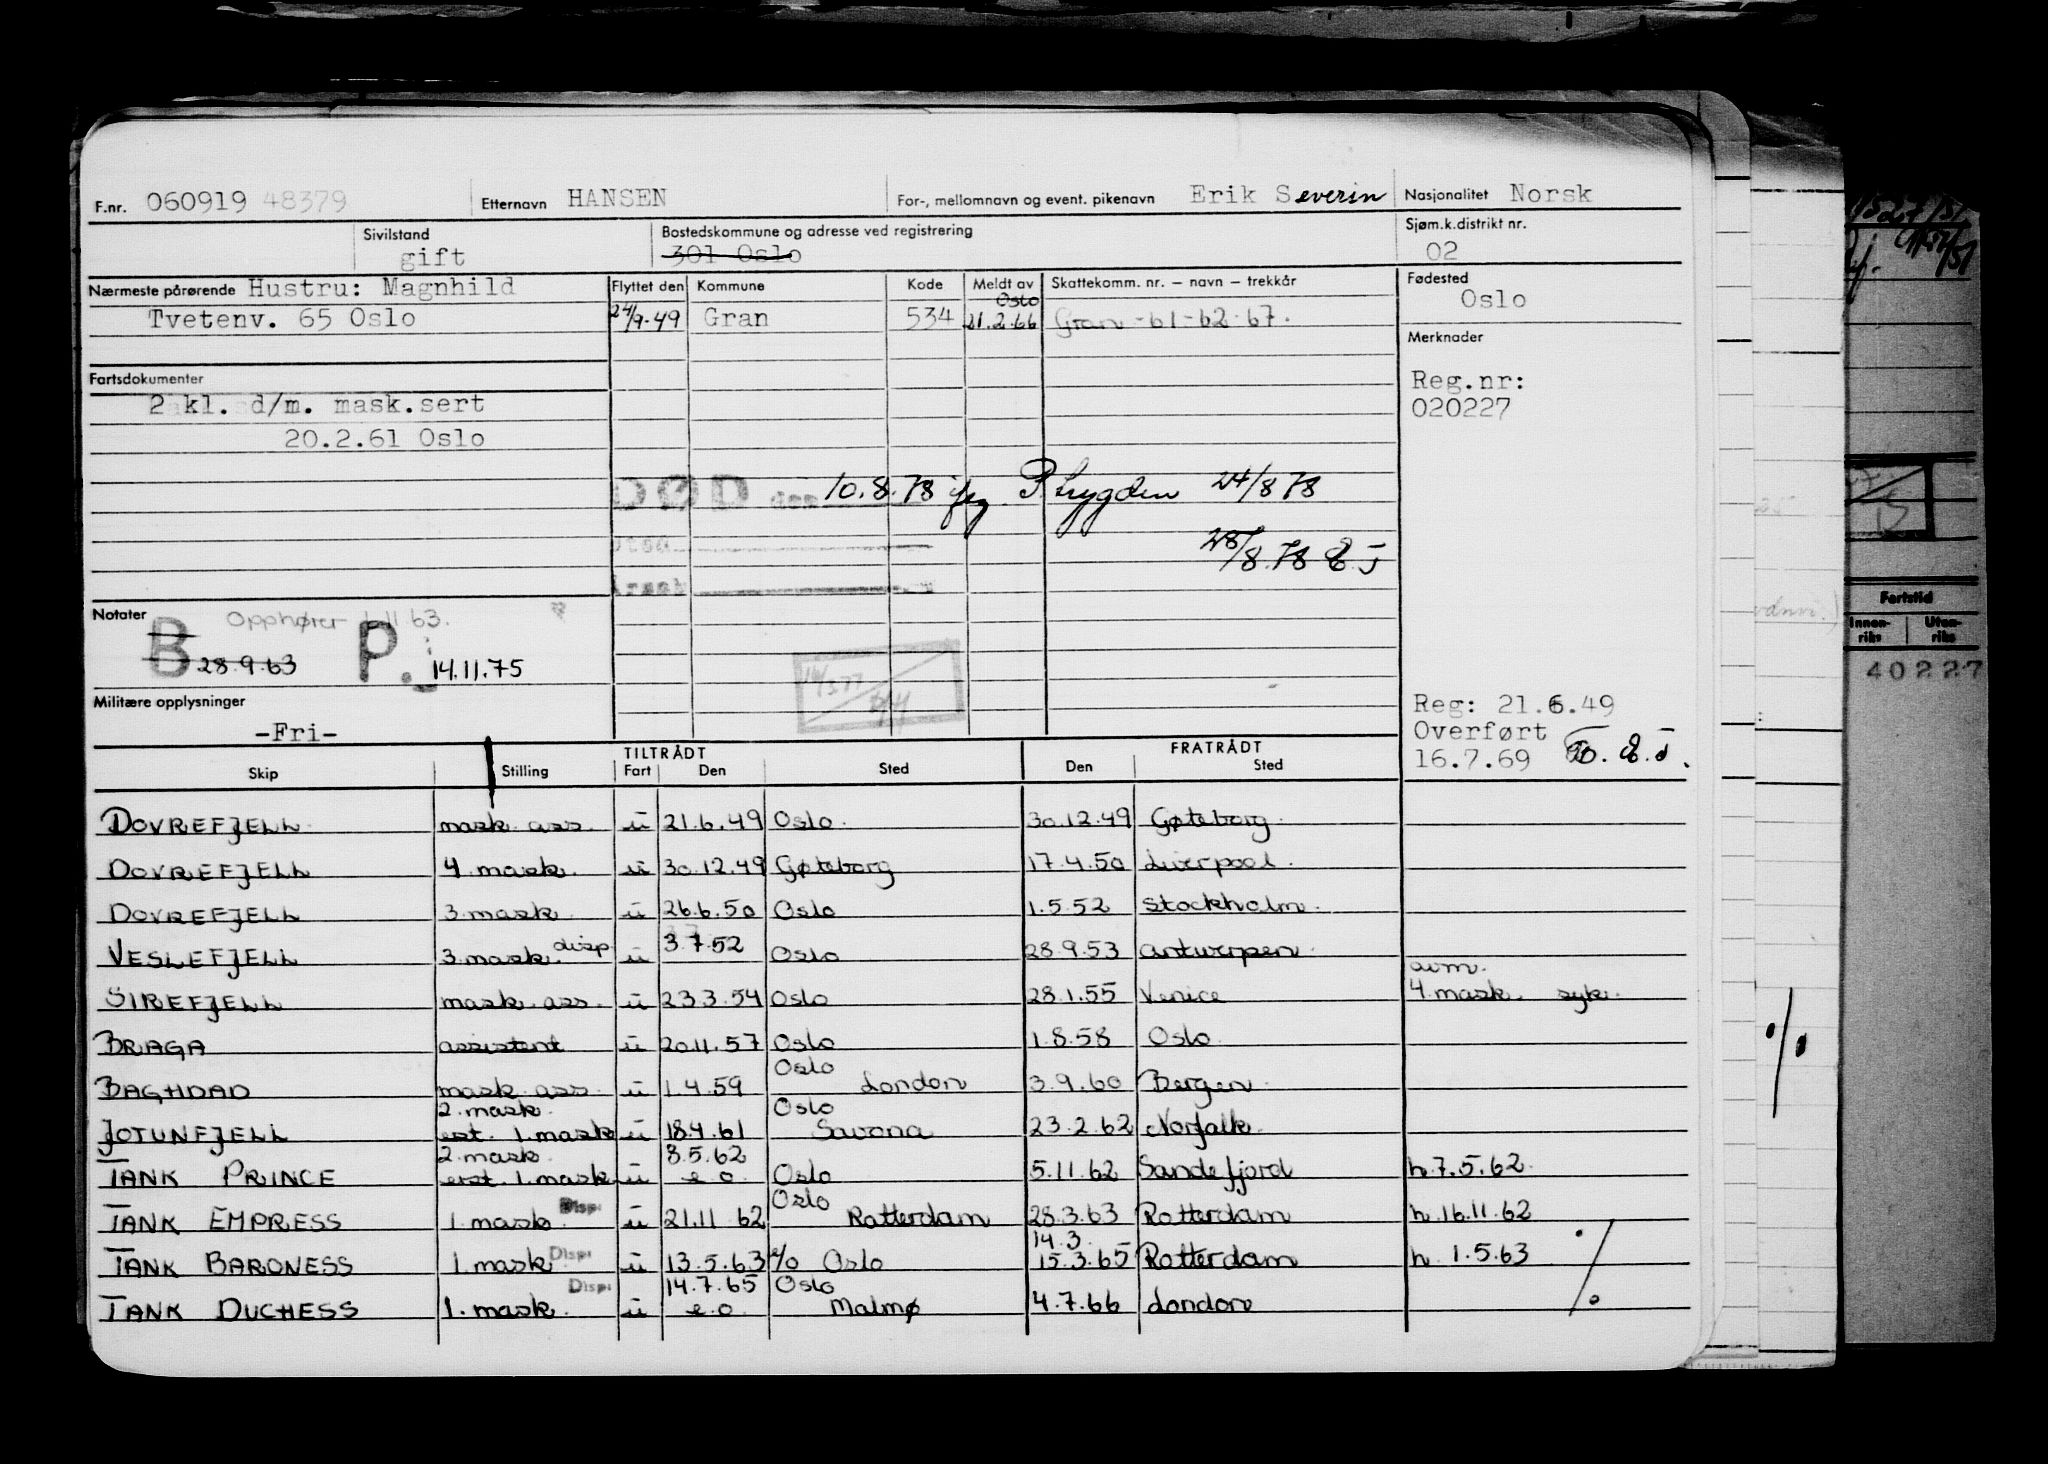 F.nr. 060919 48379 Etternavn HANSEN For-, mellomnavn og event. pikenavn Erik Severin Nasjonalitet Norsk
Sivilstand gift Bostedskommune og adresse ved registrering 301 Oslo Sjøm.k.distrikt nr. 02
Nærmeste pårørende Hustru: Magnhild Flyttet den Kommune Kode Meldt av Skattekomm. nr. – navn – trekkår Fødested
Oslo Oslo
Tvetenv. 65 Oslo 24/9-49 Gran 534 21.2.66 Gran -61-62-67.
Merknader
Fartsdokumenter Reg.nr:
2 kl. d/m. mask.sert 020227
20.2.61 Oslo
DØD den 10.8.78 Trygden 24/8 78
28/8.78 E J
Notater Opphører 1.11 63.
B 28.9.63 P. 14.11.75
Militære opplysninger Reg: 21.6.49
-Fri- Overført
16.7.69
TILTRÅDT FRATRÅDT
Skip Stilling Fart Den Sted Den Sted
DOVREFJELL mask. ass. u 21.6.49 Oslo. 30.12.49 Gøteborg.
DOVREFJELL 4. mask. u 30.12.49 Gøteborg 17.4.50 Liverpool.
DOVREFJELL 3. mask. u 26.6.50 Oslo 1.5.52 Stockholm.
VESLEFJELL 3. mask. disp u 3.7.52 Oslo 28.9.53 Antwerpen.
avm.
SIREFJELL mask. ass. u 23.3.54 Oslo 28.1.55 Venice 4. mask. syk.
BRAGA assistent u 20.11.57 Oslo 1.8.58 Oslo.
Oslo
BAGHDAD mask. ass. u 1.4.59 London 3.9.60 Bergen.
2. mask. Oslo
JOTUNFJELL erst. 1. mask u 18.4.61 Savona 23.2.62 Norfolk.
2. mask. 3.5.62
TANK PRINCE erst. 1. mask. u e.o. Oslo 5.11.62 Sandefjord h. 7.5.62.
Disp: Oslo
TANK EMPRESS 1. mask. u 21.11 62 Rotterdam 28.3.63 Rotterdam h. 16.11.62
14.3.
TANK BARONESS 1. mask. Disp: u 13.5.63 e/o Oslo 15.3.65 Rotterdam h. 1.5.63
Disp: 14.7.65 Oslo
TANK DUCHESS 1. mask. u e.o. Malmø 4.7.66 London
Fartstid
Innen-riks Uten-riks
40227